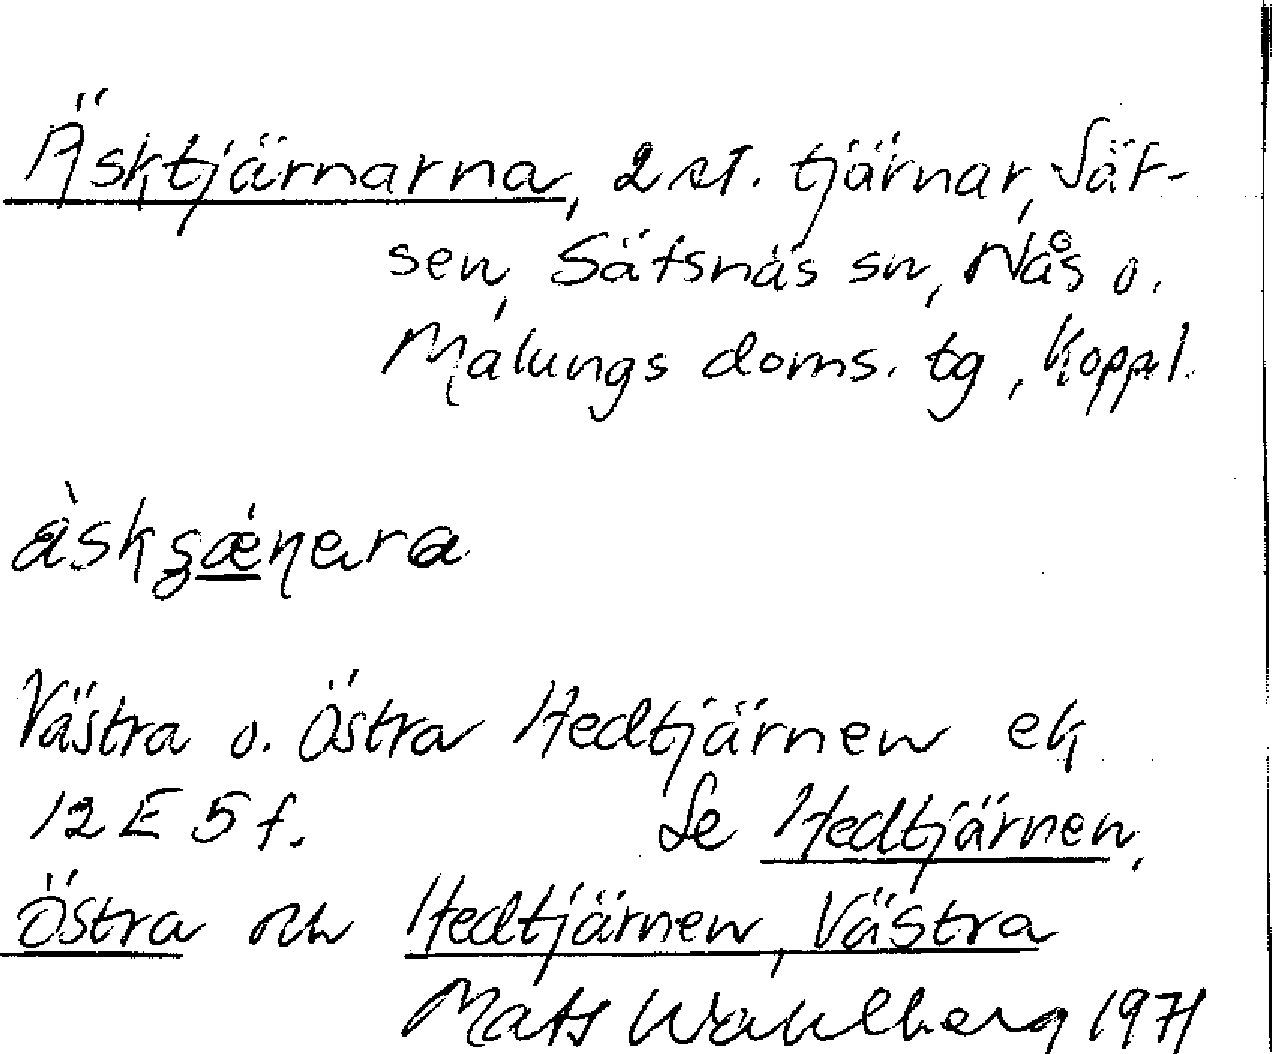 Äsktjärnarna, 2 st. tjärnar, Sät-
sen, Sätsnäs sn, Nås o.
Malungs doms. tg, Koppl.
Västra o. Östra Hedtjärnen ek
12 E 5 f. Se Hedtjärnen,
Östra och Hedtjärnen, Västra
Mats Wahlberg 1971